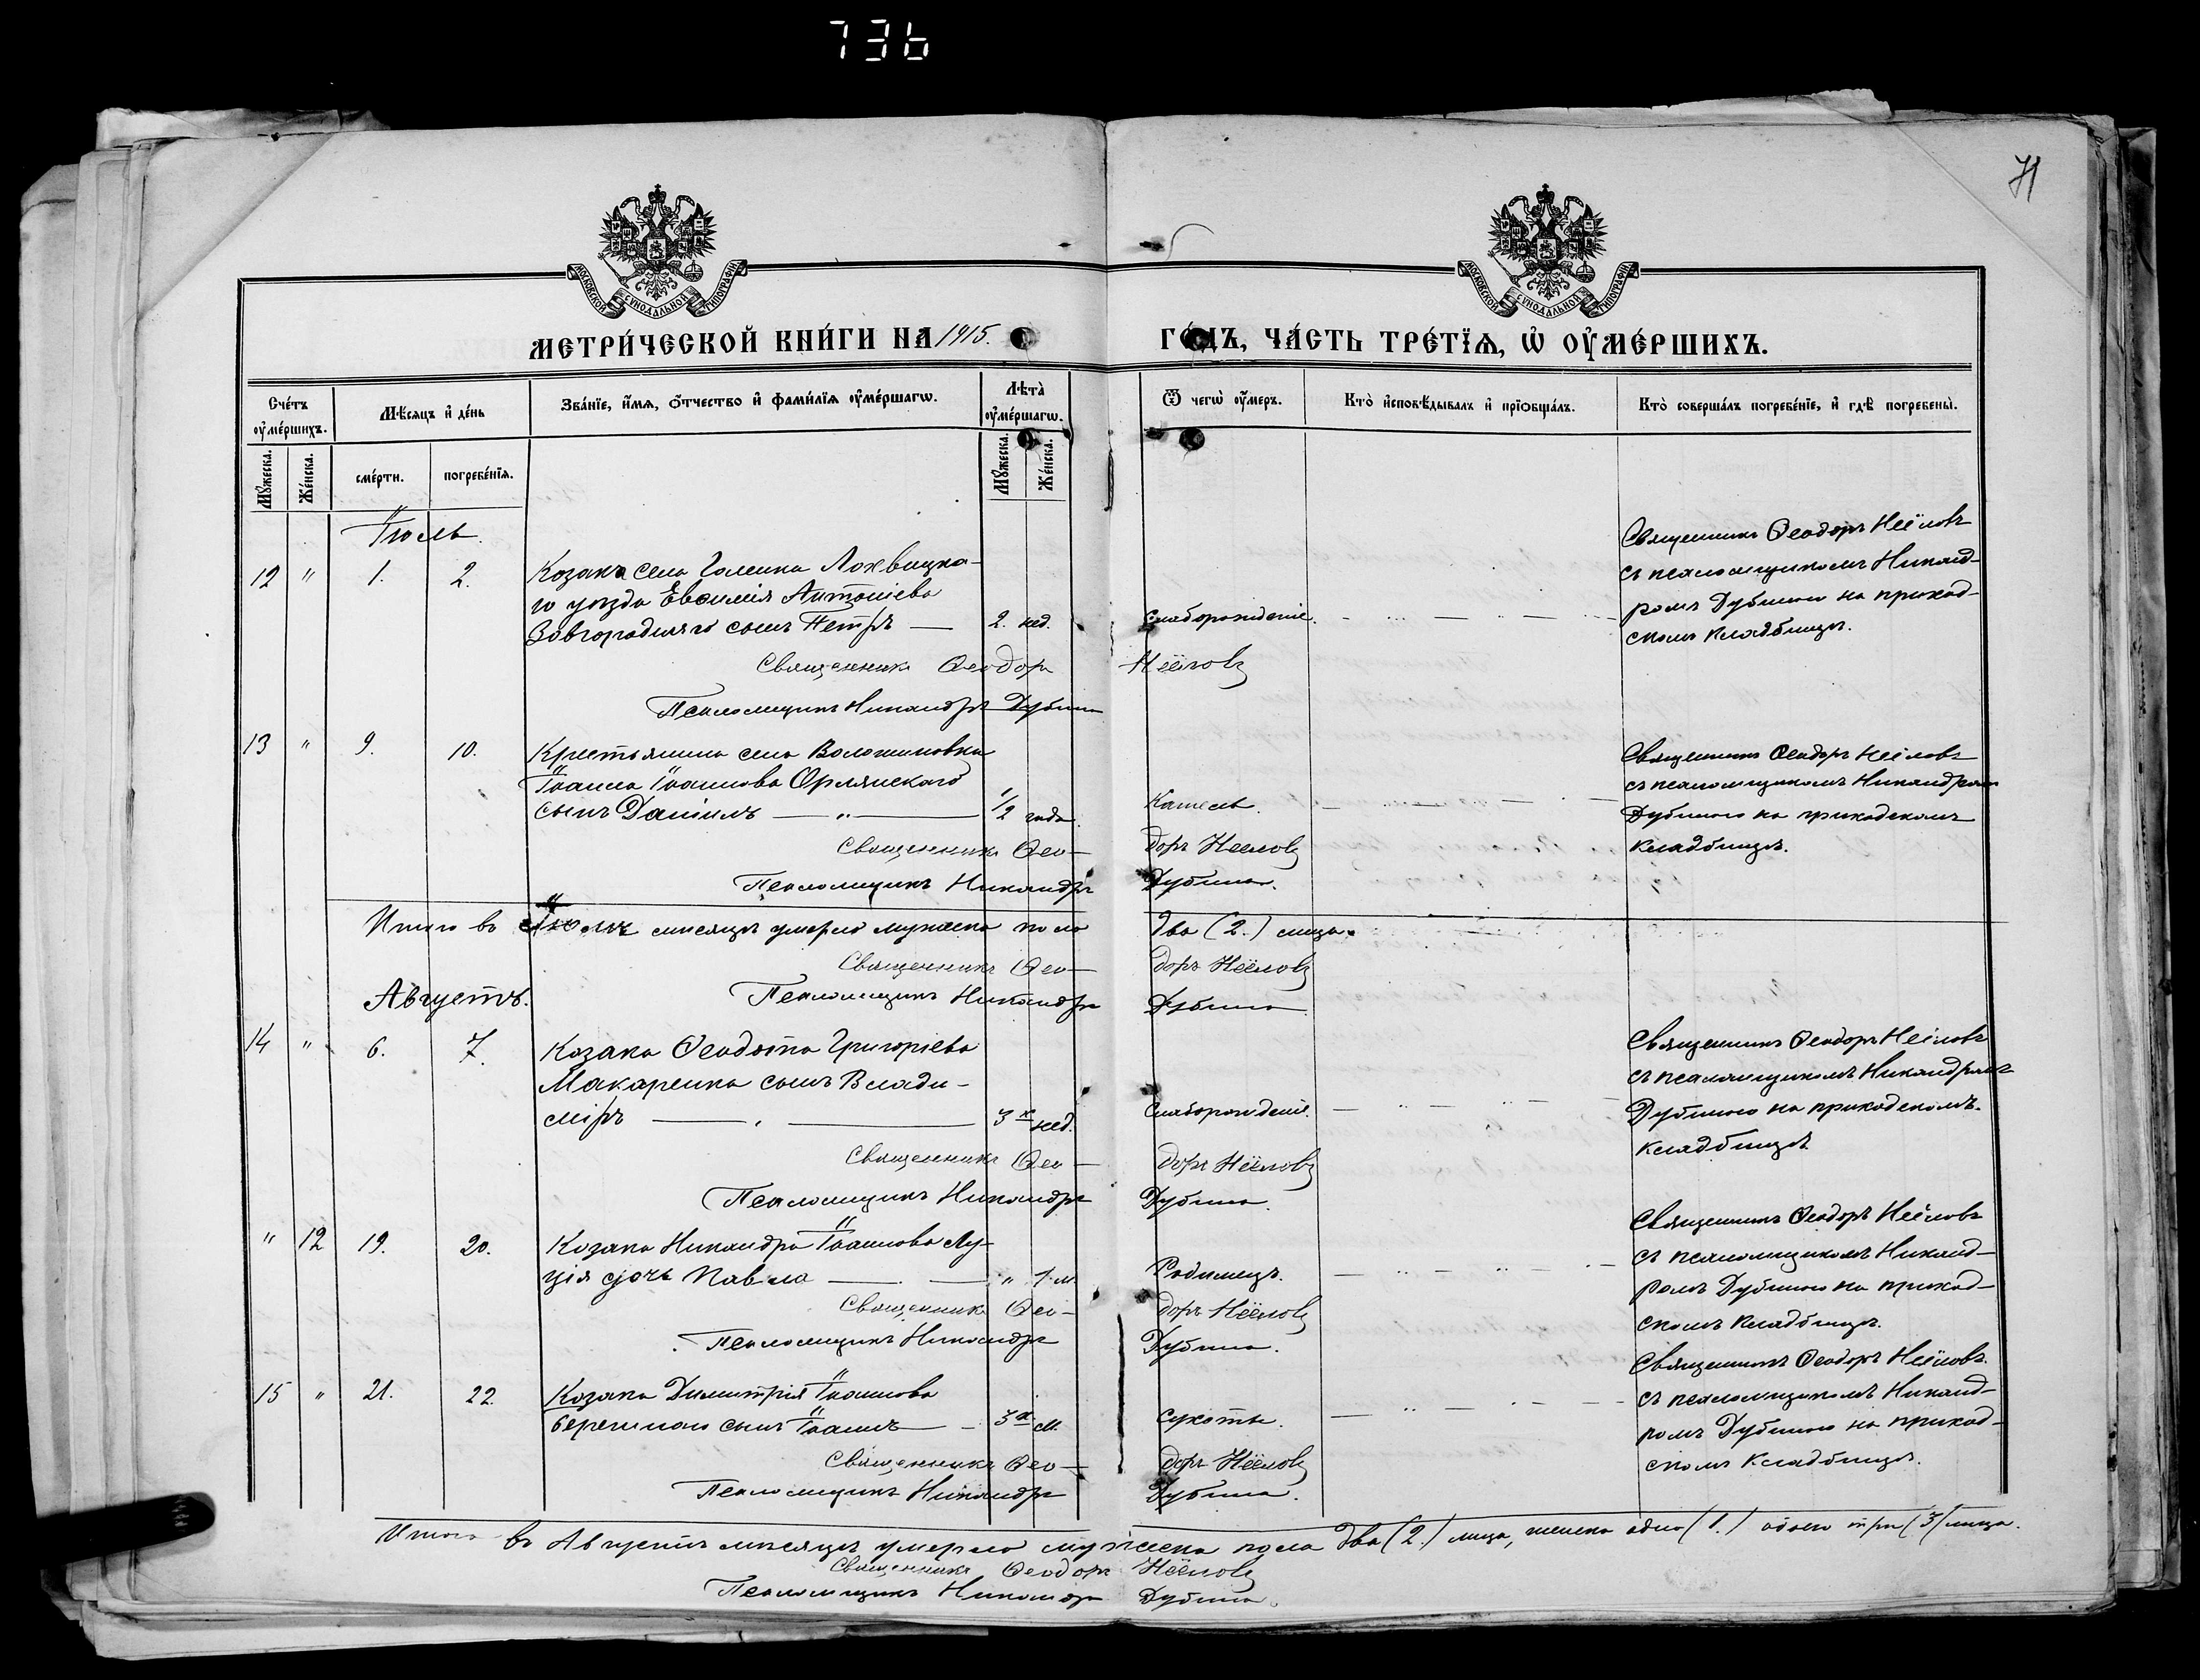 736
71
МОСКОВСКОЙ СѴНОДАЛЬНОЙ ТИПОГРАФІИ
МОСКОВСКОЙ СѴНОДАЛЬНОЙ ТИПОГРАФІИ
МЕТРИ́ЧЕСКОЙ КНИ́ГИ НА 1915. ГО́ДЪ, ЧА́СТЬ ТРЕ́ТЇѦ, Ѡ҆ ОУ҆МЕ́РШИХЪ.
Сче́тъ оу҆ме́ршихъ.
Мѣ́сяцъ и҆ де́нь
Зва́нїе, и҆́мѧ, ѻ҆́тчество и҆ фами́лїѧ оу҆ме́ршагѡ.
Лѣ́та оу҆ме́ршагѡ.
Ѿ чегѡ̀ оу҆́меръ.
Кто̀ и҆сповѣ́дывалъ и҆ прїѡбща́лъ.
Кто̀ соверша́лъ погребе́нїе, и҆ гдѣ̀ погребены̀.
Мꙋ́жеска.
Же́нска.
сме́рти.
погребе́нїѧ.
Мꙋ́жеска.
Же́нска.
Іюль.
12 " 1. 2.
Козака села Голенка Лохвицка-
го уѣзда Евѳимія Антоніева
Завгороднего сынъ Петръ — 2. нед.
Слаборожденіе.
Священникъ Ѳеодоръ Неёловъ
съ псаломщикомъ Никанд-
ромъ Дубиною на приход-
скомъ кладбищѣ.
Священникъ Ѳеодоръ Неёловъ
Псаломщикъ Никандръ Дубина
13 " 9. 10.
Крестьянина села Волошиновки
Іоанна Іоаннова Орлянскаго
сынъ Даніилъ — " — 1/2 года.
Кашель.
Священникъ Ѳеодоръ Неёловъ
съ псаломщикомъ Никандромъ
Дубиною на приходскомъ
кладбищѣ.
Священникъ Ѳео- доръ Неёловъ
Псаломщикъ Никандръ Дубина.
Итого въ Іюлѣ мѣсяцѣ умерло мужеска пола два (2.) лица.
Священникъ Ѳео- доръ Неёловъ
Псаломщикъ Никандръ Дубина
Августъ.
14 " 6. 7.
Козака Ѳеодота Григоріева
Макаренка сынъ Влади-
міръ — 3х нед.
Слаборожденіе.
Священникъ Ѳеодоръ Неёловъ
съ псаломщикомъ Никандромъ
Дубиною на приходскомъ
кладбищѣ.
Священникъ Ѳео- доръ Неёловъ
Псаломщикъ Никандръ Дубина.
" 12 19. 20.
Козака Никандра Іоаннова Лу-
ція дочь Павла — " 1 м.
Родимецъ.
Священникъ Ѳеодоръ Неёловъ
съ псаломщикомъ Никанд-
ромъ Дубиною на приход-
скомъ кладбищѣ.
Священникъ Ѳео- доръ Неёловъ
Псаломщикъ Никандръ Дубина.
15 " 21. 22.
Козака Димитрія Іоаннова
сынъ Іоаннъ — 3х м.
Сухоты.
Священникъ Ѳеодоръ Неёловъ
съ псаломщикомъ Никанд-
ромъ Дубиною на приход-
скомъ кладбищѣ.
Священникъ Ѳео- доръ Неёловъ
Псаломщикъ Никандръ Дубина.
Итого въ Августѣ мѣсяцѣ умерло мужеска пола два (2.) лица, женска одно (1.) обоего три (3) лица.
Священникъ Ѳеодоръ Неёловъ
Псаломщикъ Никандръ Дубина.